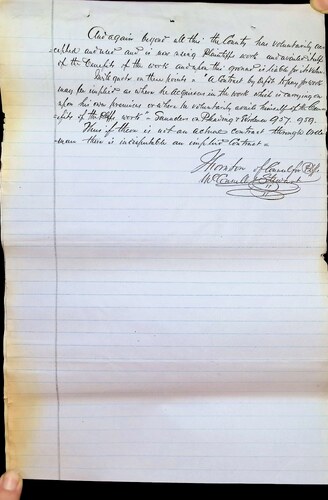 And again beyond all this the County has voluntarily ac-
cepted and used and is now using Plaintiffs work and availed itself
of the benefit of the work and upon this ground is liable for its value
We quote on these points - "A Contract by deft to pay for work
may be implied as where he acquiesces in the work which is carrying on
upon his own premises or where he voluntarily avails himself of the ben-
efits of the Plffs work" - Saunders on Pleading & Evidence 957. 959.
Thus if there is not an actual contract through
man there is indisputably an implied Contract.
Thornton of Counsel for Plffs
McConnell & Stewart